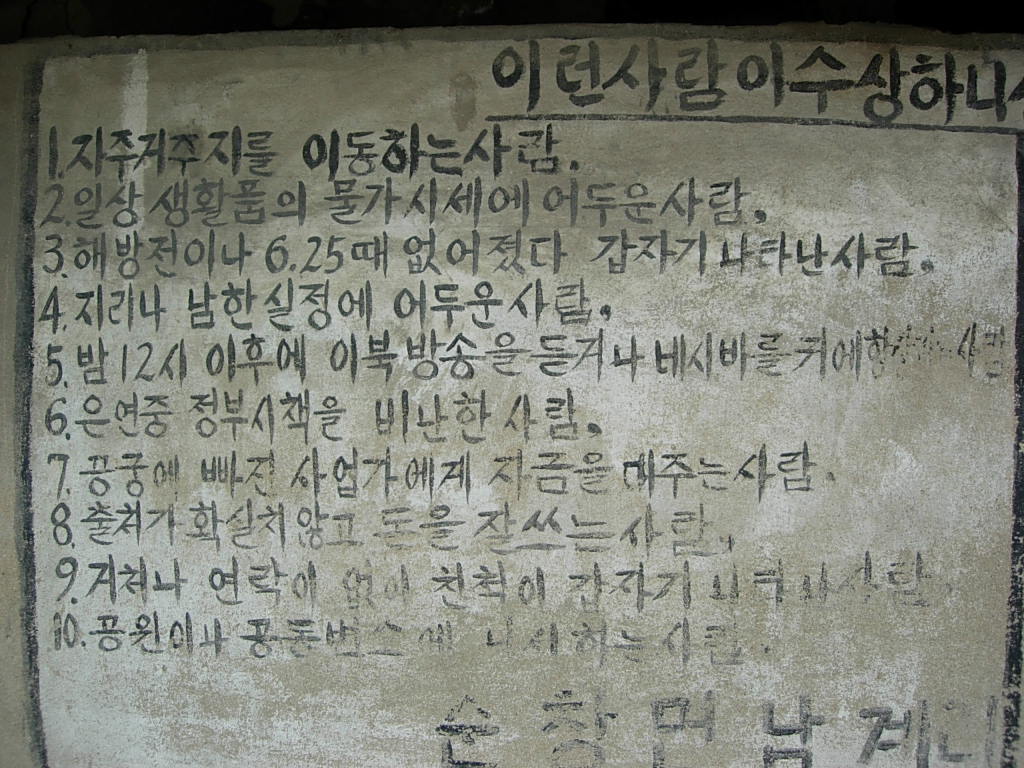 이런사람이수상하니
1. 자주거주지를 이동하는사람.
2. 일상 생활품의 물가시세에 어두운사람.
3. 해방전이나 6.25때 없어졌다 갑자기 나타난사람.
4. 지리나 남한실정에 어두운사람.
5. 밤12시 이후에 이북방송을듣거나 네시바를키에 사람
6. 은연중 정부시책을 비난한 사람.
7. 공궁에 빠진 사업가에게 자금을 대주는사람.
8. 출처가 확실치않고 돈을 잘쓰는사람.
9. 거처나 연락이 없이 친척이 갑자기 나타난사람.
10. 공원이나 공동번소에 사람.
순창면남계리